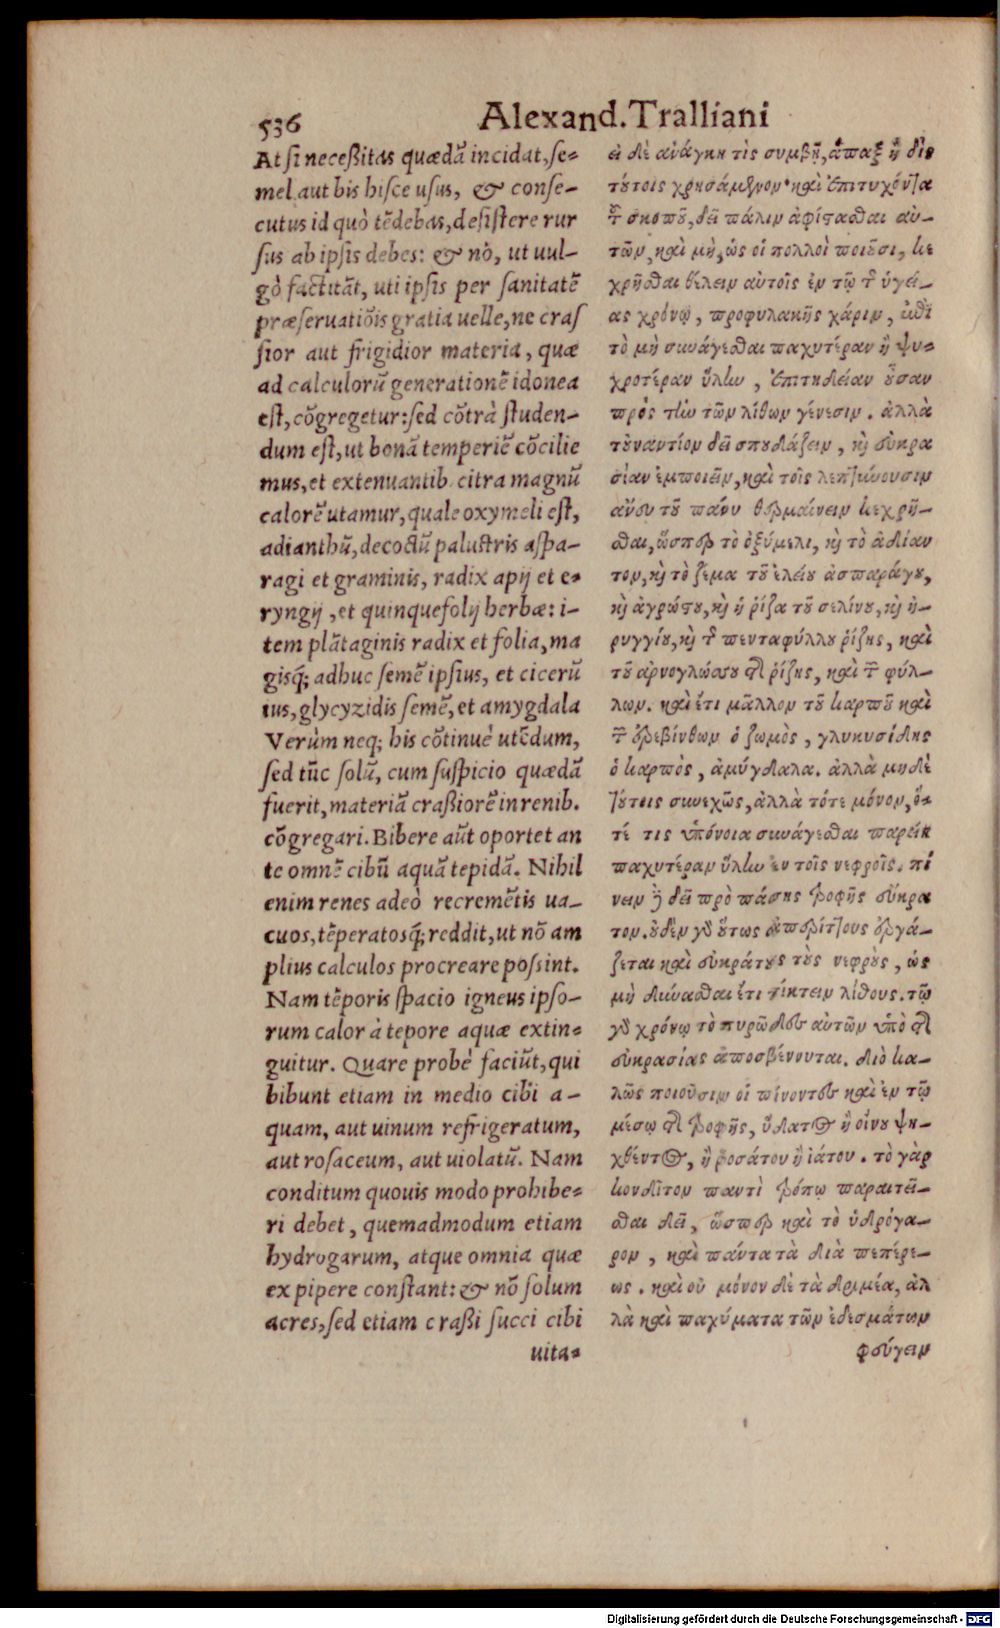 536
Alexand. Tralliani
At si neceßitas quædã incidat, se-
mel aut bis hisce usus, & conse-
cutus id quò tẽdebas, desistere rur
sus ab ipsis debes: & nõ, ut uul-
gò factitãt, uti ipsis per sanitatẽ
præseruatiõis gratia uelle, ne cras
sior aut frigidior materia, quæ
ad calculorũ generationẽ idonea
est, cõgregetur: sed cõtrà studen-
dum est, ut bonã temperiẽ cõcilie
mus, et extenuantib. citra magnũ
calorẽ utamur, quale oxymeli est,
adianthũ, decoctũ palustris aspa-
ragi et graminis, radix apij et e-
ryngij, et quinquefolij herbæ: i-
tem plãtaginis radix et folia, ma
gisq́; adhuc semẽ ipsius, et cicerũ
ius, glycyzidis semẽ, et amygdala
Verùm neq; his cõtinuè utẽdum,
sed tũc solũ, cum suspicio quædã
fuerit, materiã craßiorẽ in renib.
cõgregari. Bibere aũt oportet an
te omnẽ cibũ aquã tepidã. Nihil
enim renes adeò recremẽtis ua-
cuos, tẽperatosq́; reddit, ut nõ am
plius calculos procreare possint.
Nam tẽporis spacio igneus ipso-
rum calor à tepore aquæ extin-
guitur. Quare probè faciũt, qui
bibunt etiam in medio cibi a-
quam, aut uinum refrigeratum,
aut rosaceum, aut uiolatũ. Nam
conditum quouis modo prohibe-
ri debet, quemadmodum etiam
hydrogarum, atque omnia quæ
ex pipere constant: & nõ solum
acres, sed etiam craßi succi cibi
uita-
εἰ δὲ ἀνάγκη τὶς συμβῇ, ἅπαξ ἢ δὶς
τούτοις χρησάμενον· καὶ ἐπιτυχόντα
τοῦ σκοποῦ, δεῖ πάλιν ἀφίστασθαι αὐ-
τῶν, καὶ μὴ, ὡς οἱ πολλοὶ ποιοῦσι, κε
χρῆσθαι θέλειν αὐτοῖς ἐν τῷ τῆς ὑγεί-
ας χρόνῳ, προφυλακῆς χάριν, καὶ
τὸ μὴ συνάγεσθαι παχυτέραν ἢ ψυ-
χροτέραν ὕλην, ἐπιτηδείαν οὖσαν
πρὸς τὴν τῶν λίθων γένεσιν. ἀλλὰ
τὸυναντίον δεῖ σπουδάζειν, καὶ εὐκρα
σίαν ἐμποιεῖν, καὶ τοῖς λεπτύνουσιν
ἄνευ τοῦ πάνυ θερμαίνειν κεχρῆ-
σθαι, ὥσπερ τὸ ὀξύμελι, καὶ τὸ ἀδίαν
τον, καὶ τὸ ζέμα τοῦ ἑλείου ἀσπαράγου,
καὶ ἀγρώστου, καὶ ἡ ῥίζα τοῦ σελίνου, καὶ ἠ-
ρυγγίου, καὶ τοῦ πενταφύλλου ῥίζης, καὶ
τοῦ ἀρνογλώσσου τῆς ῥίζης, καὶ τῶν φύλ-
λων. καὶ ἔτι μᾶλλον τοῦ καρποῦ καὶ
τῶν ἐρεβίνθων ὁ ζωμὸς, γλυκυσίδης
ὁ καρπὸς, ἀμύγδαλα. ἀλλὰ μηδὲ
τούτοις συνεχῶς, ἀλλὰ τότε μόνον, ὅ-
τέ τις ὑπόνοια συνάγεσθαι παρείη
παχυτέραν ὕλην ἐν τοῖς νεφροῖς. πί
νειν δὲ δεῖ πρὸ πάσης τροφῆς εὔκρα
τον. οὐδὲν γὰρ οὕτως ἀπερίττους ἐργά-
ζεται καὶ εὐκράτους τοὺς νεφροὺς, ὡς
μὴ δύνασθαι ἔτι τίκτειν λίθους. τῷ
γὰρ χρόνῳ τὸ πυρῶδες αὐτῶν ὑπὸ τῆς
εὐκρασίας ἀποσβέννυται. διὸ κα-
λῶς ποιοῦσιν οἱ πίνοντες καὶ ἐν τῷ
μέσῳ τῆς τροφῆς, ὕδατος ἢ οἴνου ψη-
χθέντος, ἢ ῥοσάτου ἢ ἰάτου. τὸ γὰρ
κονδῖτον παντὶ τρόπῳ παραιτεῖ-
σθαι δεῖ, ὥσπερ καὶ τὸ ὑδρόγα-
ρον, καὶ πάντα τὰ διὰ πεπέρε-
ως. καὶ οὐ μόνον δὲ τὰ δριμέα, ἀλ
λὰ καὶ παχύματα τῶν ἐδεσμάτων
φεύγειν
Digitalisierung gefördert durch die Deutsche Forschungsgemeinschaft - DFG